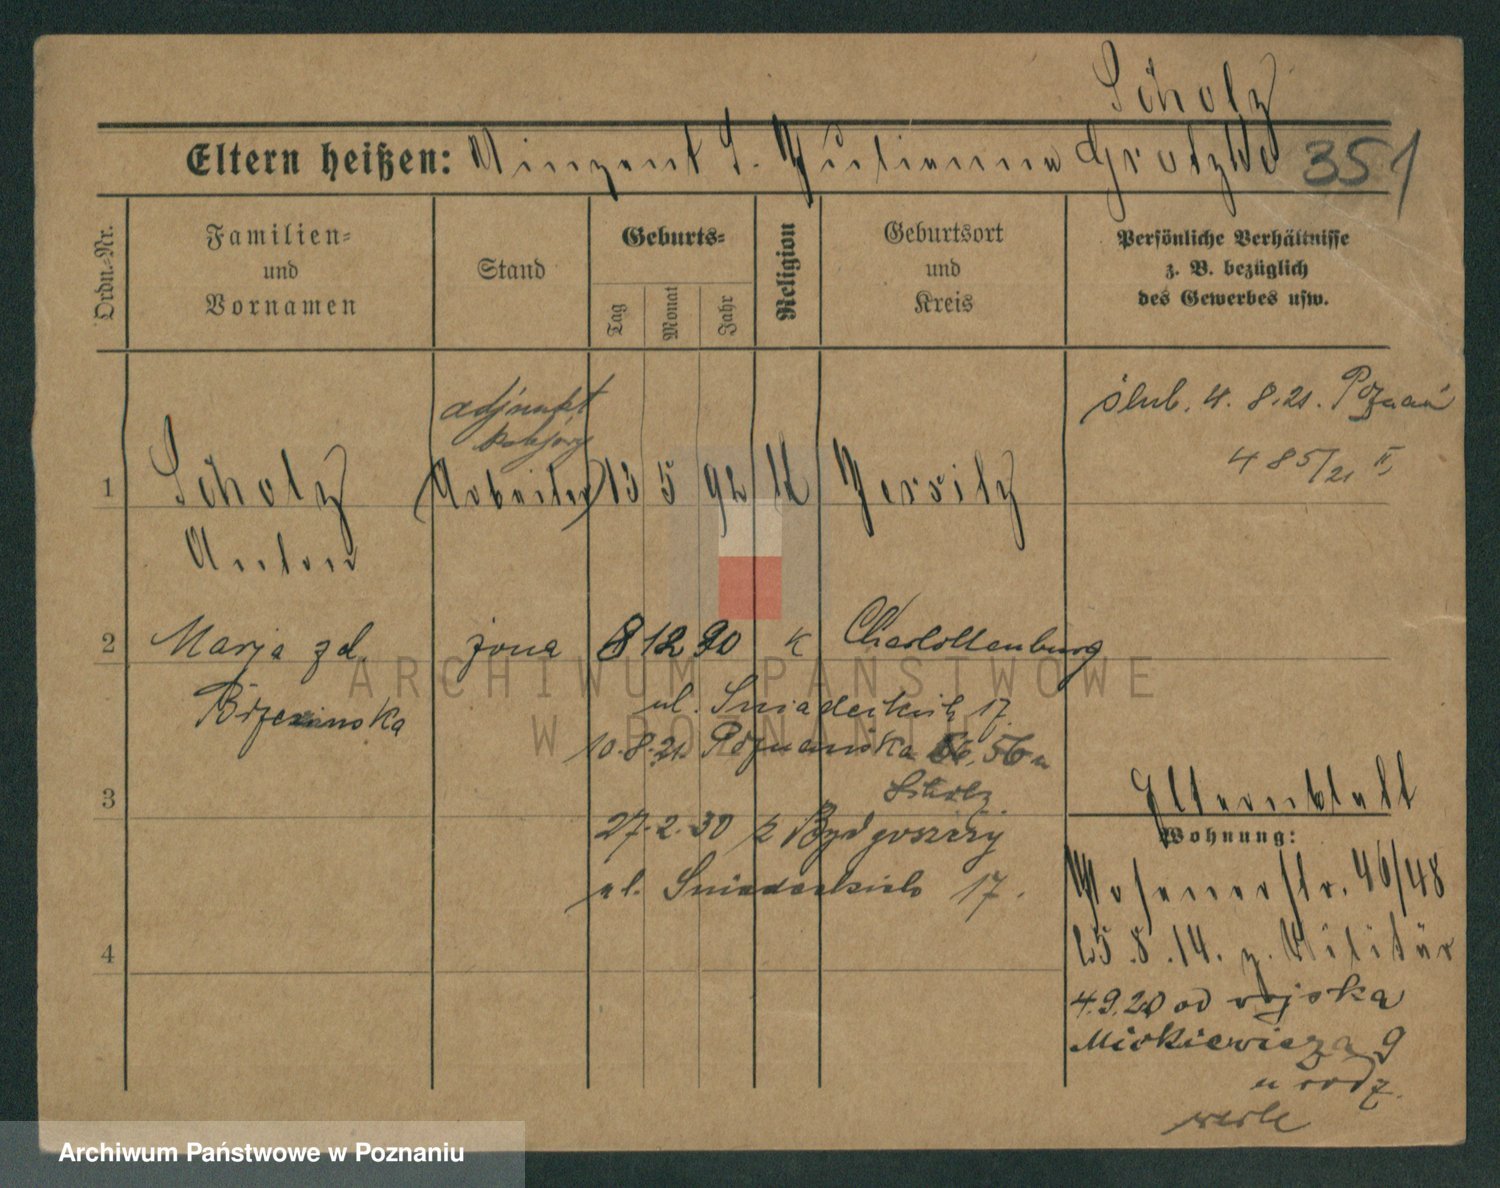 Scholz
Eltern heißen: Vinzent S. Julianna Grotzko 351
Ordn.-Nr.
Familien-
und
Vornamen
Stand
Geburts-
Tag
Monat
Jahr
Religion
Geburtsort
und
Kreis
Persönliche Verhältnisse
z. B. bezüglich
des Gewerbes usw.
ślub. 4. 8.21. Poznań
485/21 II,
adjunkt
1 Scholz (Arbeiter) 13 5 92 k Jersitz
Anton
2 Marja zd. żona 8 12 90 k Charlottenburg
Brzezinska
ul. Sniadeckich 17
10.8.21. Poznańska 56, 56 u
Scholz
3
27.2.30 z Bydgoszczy
ul. Sniadeckich 17.
4
Elternblatt
Wohnung:
Posenerstr. 46/48
25.8.14. z. Militär
4.9.20 od wojska
Mickiewicza 9
u rodz.
ARCHIWUM PAŃSTWOWE
W POZNANIU
Archiwum Państwowe w Poznaniu